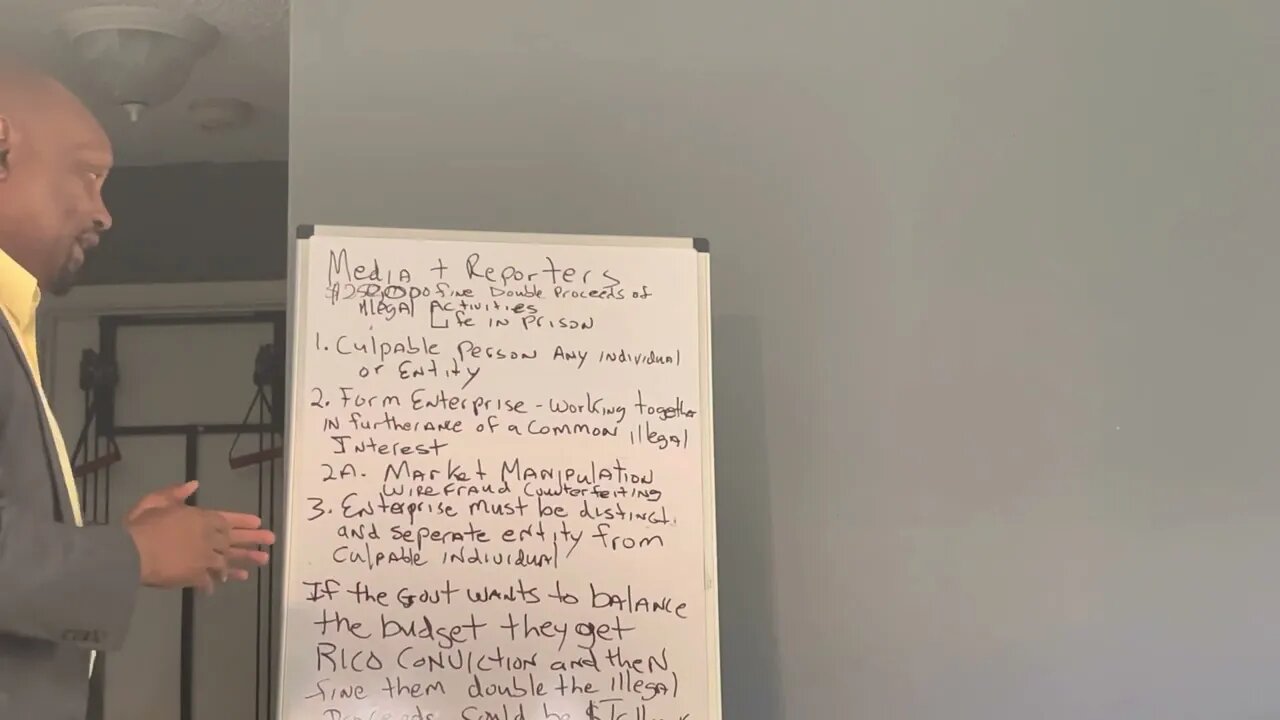 Media + Reporters
fine Double Proceeds of
Illegal Activities
Life in prison
1. Culpable person Any individual
or Entity
2. Form Enterprise - working together
in furtherance of a common illegal
Interest
2A. Market Manipulation
wire fraud Counterfeiting
3. Enterprise must be distinct
and seperate entity from
Culpable individual
If the govt wants to balance
the budget they get
RICO Conviction and then
fine them double the Illegal
Proceeds could be